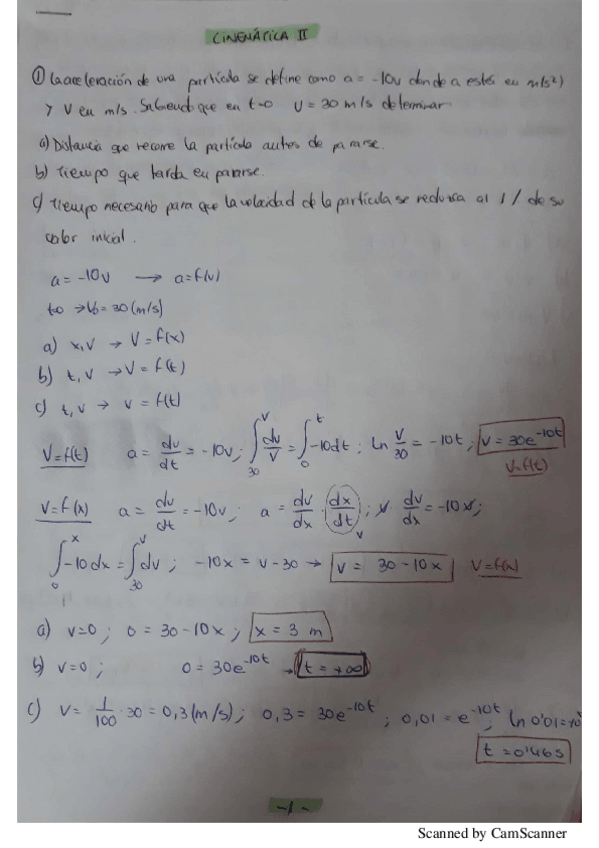 CINEMÁTICA II
① La aceleración de una partícula se define como a = -10v donde a está en m/s²)
y v en m/s. Sabiendo que en t=0 v = 30 m/s determinar
a) Distancia que recorre la partícula antes de pararse.
b) Tiempo que tarda en pararse.
c) Tiempo necesario para que la velocidad de la partícula se reduzca al 1 / de su
valor inicial.
a = -10v → a = f(v)
t=0 → V₀ = 30 (m/s)
a) x, v → v = f(x)
b) t, v → v = f(t)
c) t, v → v = f(t)
V = f(t) a = dv/dt = -10v; ∫₃₀ᵛ dv/v = ∫₀ᵗ -10dt; ln v/30 = -10t; v = 30e^-10t
v = f(t)
V = f(x) a = dv/dt = -10v; a = dv/dx · dx/dt; v dv/dx = -10v;
v
∫₀ˣ -10dx = ∫₃₀ᵛ dv; -10x = v - 30 → v = 30 - 10x V = f(x)
a) v=0; 0 = 30 - 10x; x = 3 m
b) v=0; 0 = 30e^-10t → t = +∞
c) v = 1/100 · 30 = 0,3 (m/s); 0,3 = 30e^-10t; 0,01 = e^-10t; ln 0'01 =
t = 0'46s
-1-
Scanned by CamScanner